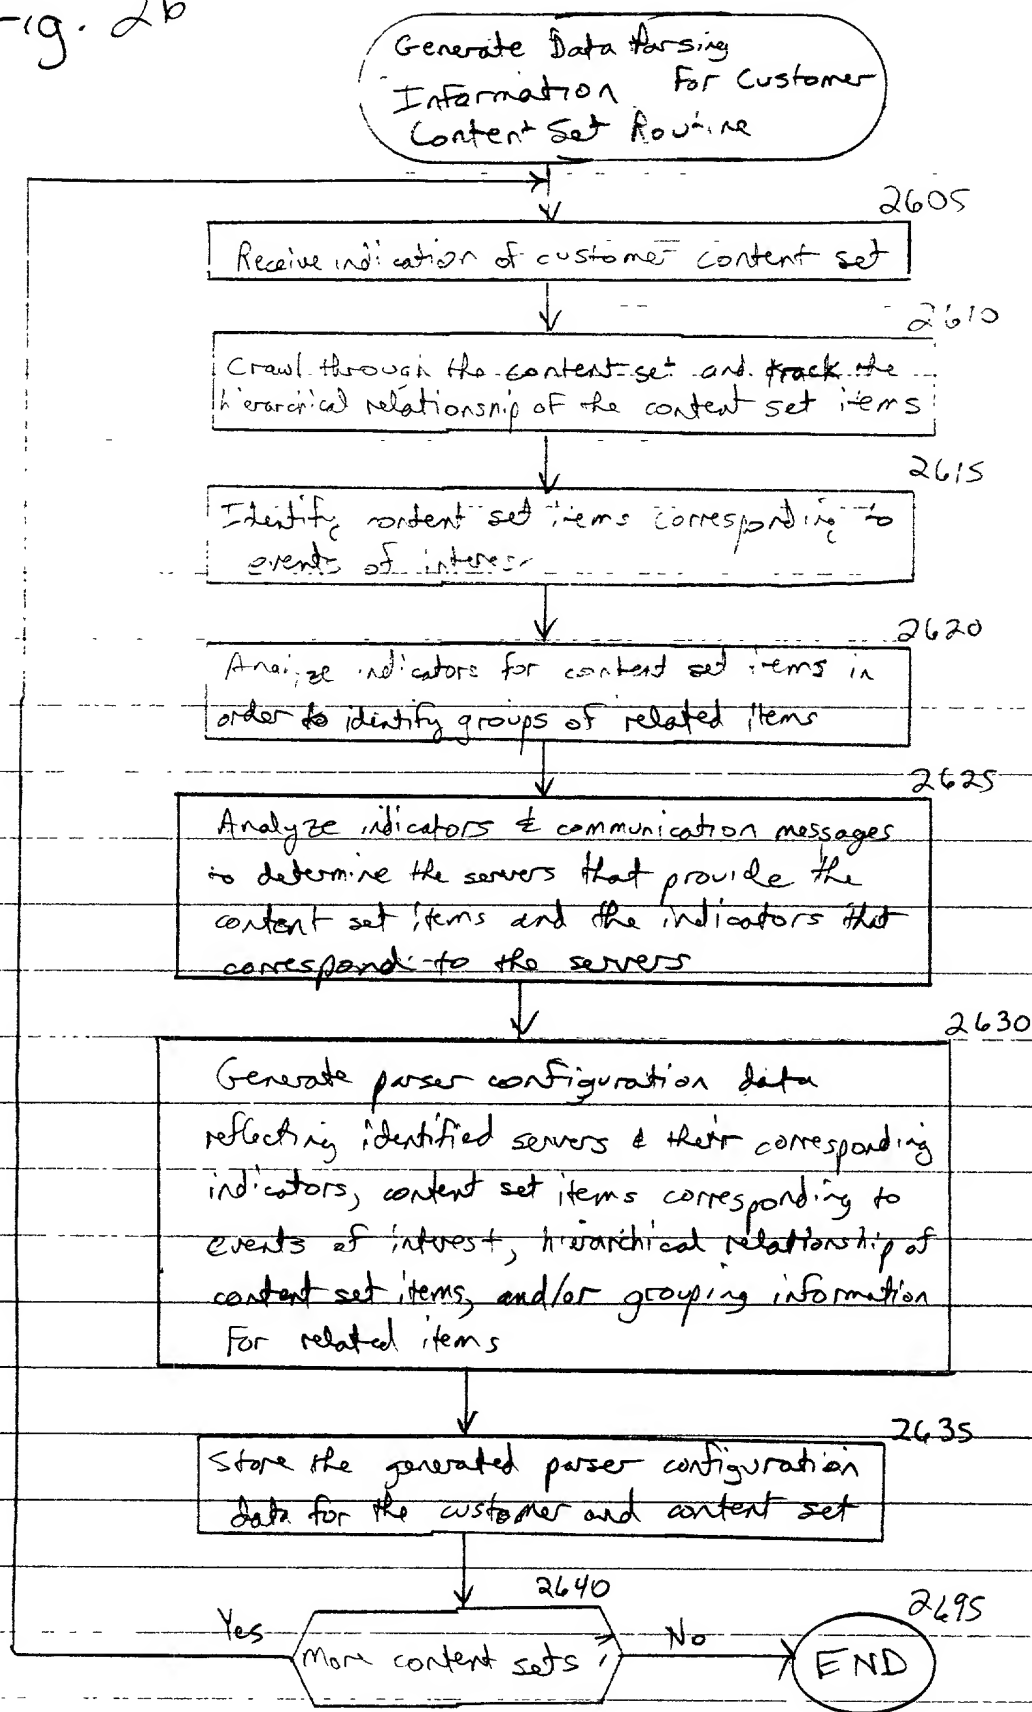 Fig. 26
Generate Data Parsing
Information For Customer
Content Set Routine
2605
Receive indication of customer content set
2610
Crawl through the content set and track the
hierarchical relationship of the content set items
2615
Identify content set items corresponding to
events of interest
2620
Analyze indicators for content set items in
order to identify groups of related items
2625
Analyze indicators & communication messages
to determine the servers that provide the
content set items and the indicators that
correspond to the servers
2630
Generate parser configuration data
reflecting identified servers & their corresponding
indicators, content set items corresponding to
events of interest, hierarchical relationship of
content set items, and/or grouping information
For related items
2635
Store the generated parser configuration
data for the customer and content set
2640
2695
Yes
More content sets ?
No
END